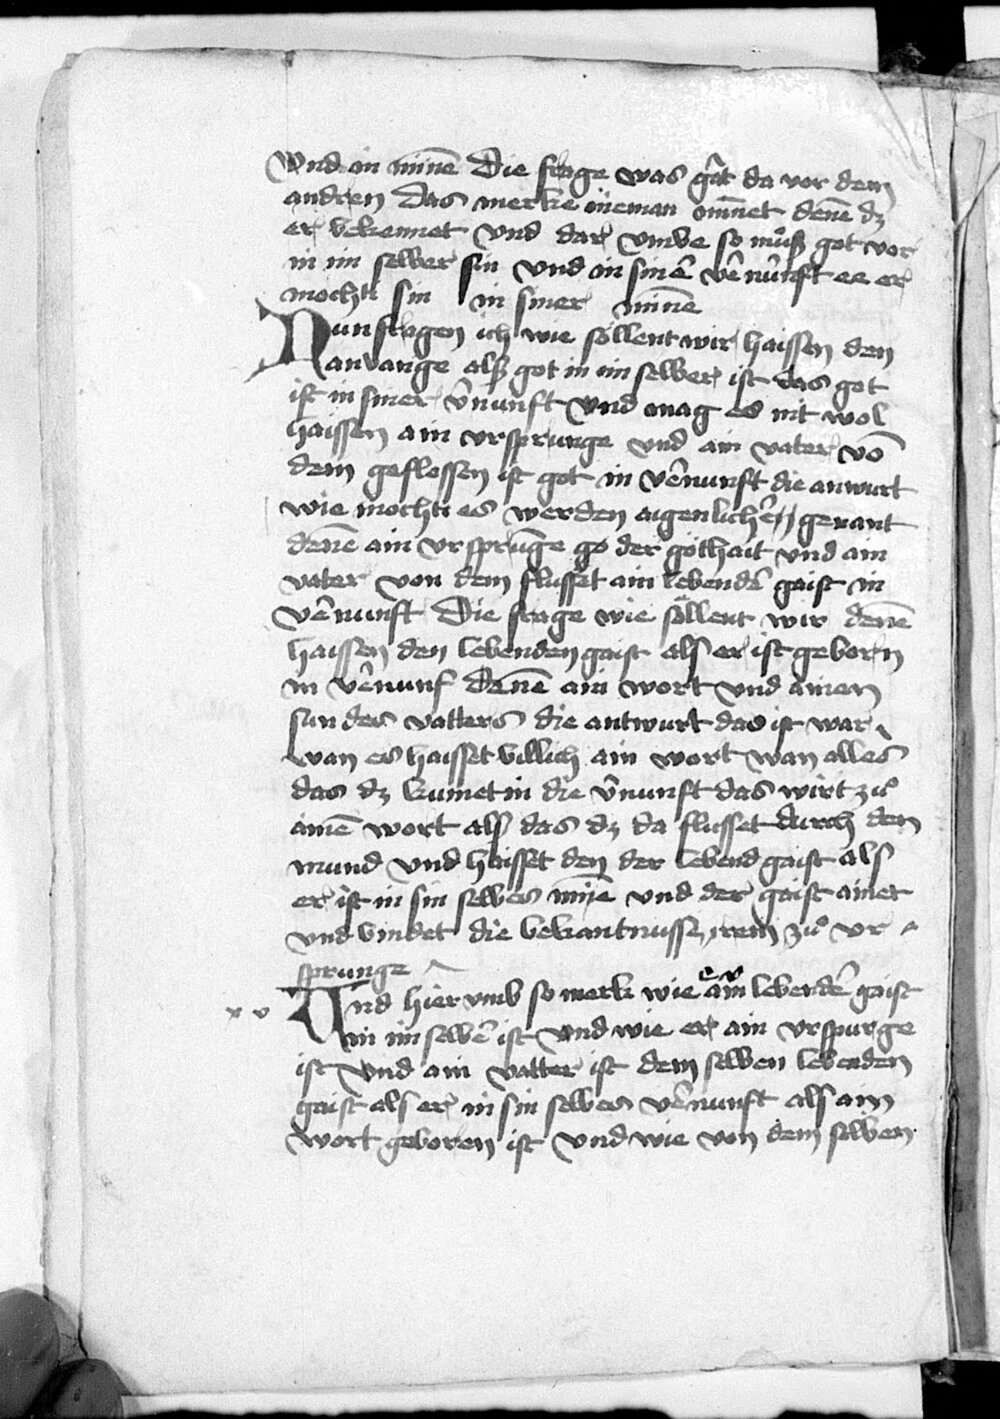 Vnd in minē Die frage was gāt da vor dem
andren Das merke nieman minnet denē dz
er bekennet Vnd dar vmbe so můß got vor
in im selber sin Vnd in sinē vērnunft ee er
mochti sin in siner minē
Nun fragen ich wie söllent wir haissen den
anvange alß got in im selber ist das got
ist in siner v̄nunft Vnd mag es nit wol
haissen ain vrsprunge vnd ain vater vō
dem geflossen ist got in vērnunft die anwurt
wie mochti es werden aigenlichē genant
denē ain vrsprūnge go der gothait vnd ain
vater von dem flusset ain lebendē gaist in
vērnunft Die frage wie söllent wir denē
haissen den lebenden gaist als er ist geborn
in vērnunf denē ain wort vnd ainen
sun des vatters die antwurt das ist war
wan es haisset billich ain wort wan alles
das dz kumet in die v̄nunft das wirt zů
ainē wort alß das dz da flusset durch den
mund vnd haisset den der lebend gaist als
er ist in sin selbes minē vnd der gaist ainet
vnd bindet die bekantnusse irem zů vr
sprunge
xv Vnd hier vmb so merk wie ain lebendē gaist
in im selbē ist vnd wie er ain vrspurge
ist vnd ain vatter ist dem selben lebenden
gaist als er in sin selbes vērnunft als ain
wort geboren ist vnd wie von dem selben